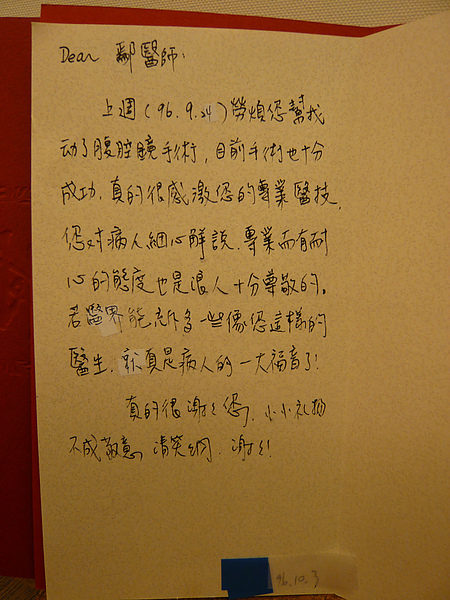 Dear 鄒醫師:
上週(96.9.24)勞煩您幫我
动了腹腔鏡手術,目前手術也十分
成功,真的很感激您的專業醫技,
您对病人細心解說、專業而有耐
心的態度也是讓人十分尊敬的。
若醫界能多一些像您這樣的
醫生,就真是病人的一大福音了!
真的很謝謝您,小小礼物
不成敬意,請笑納,謝謝!
96.10.3